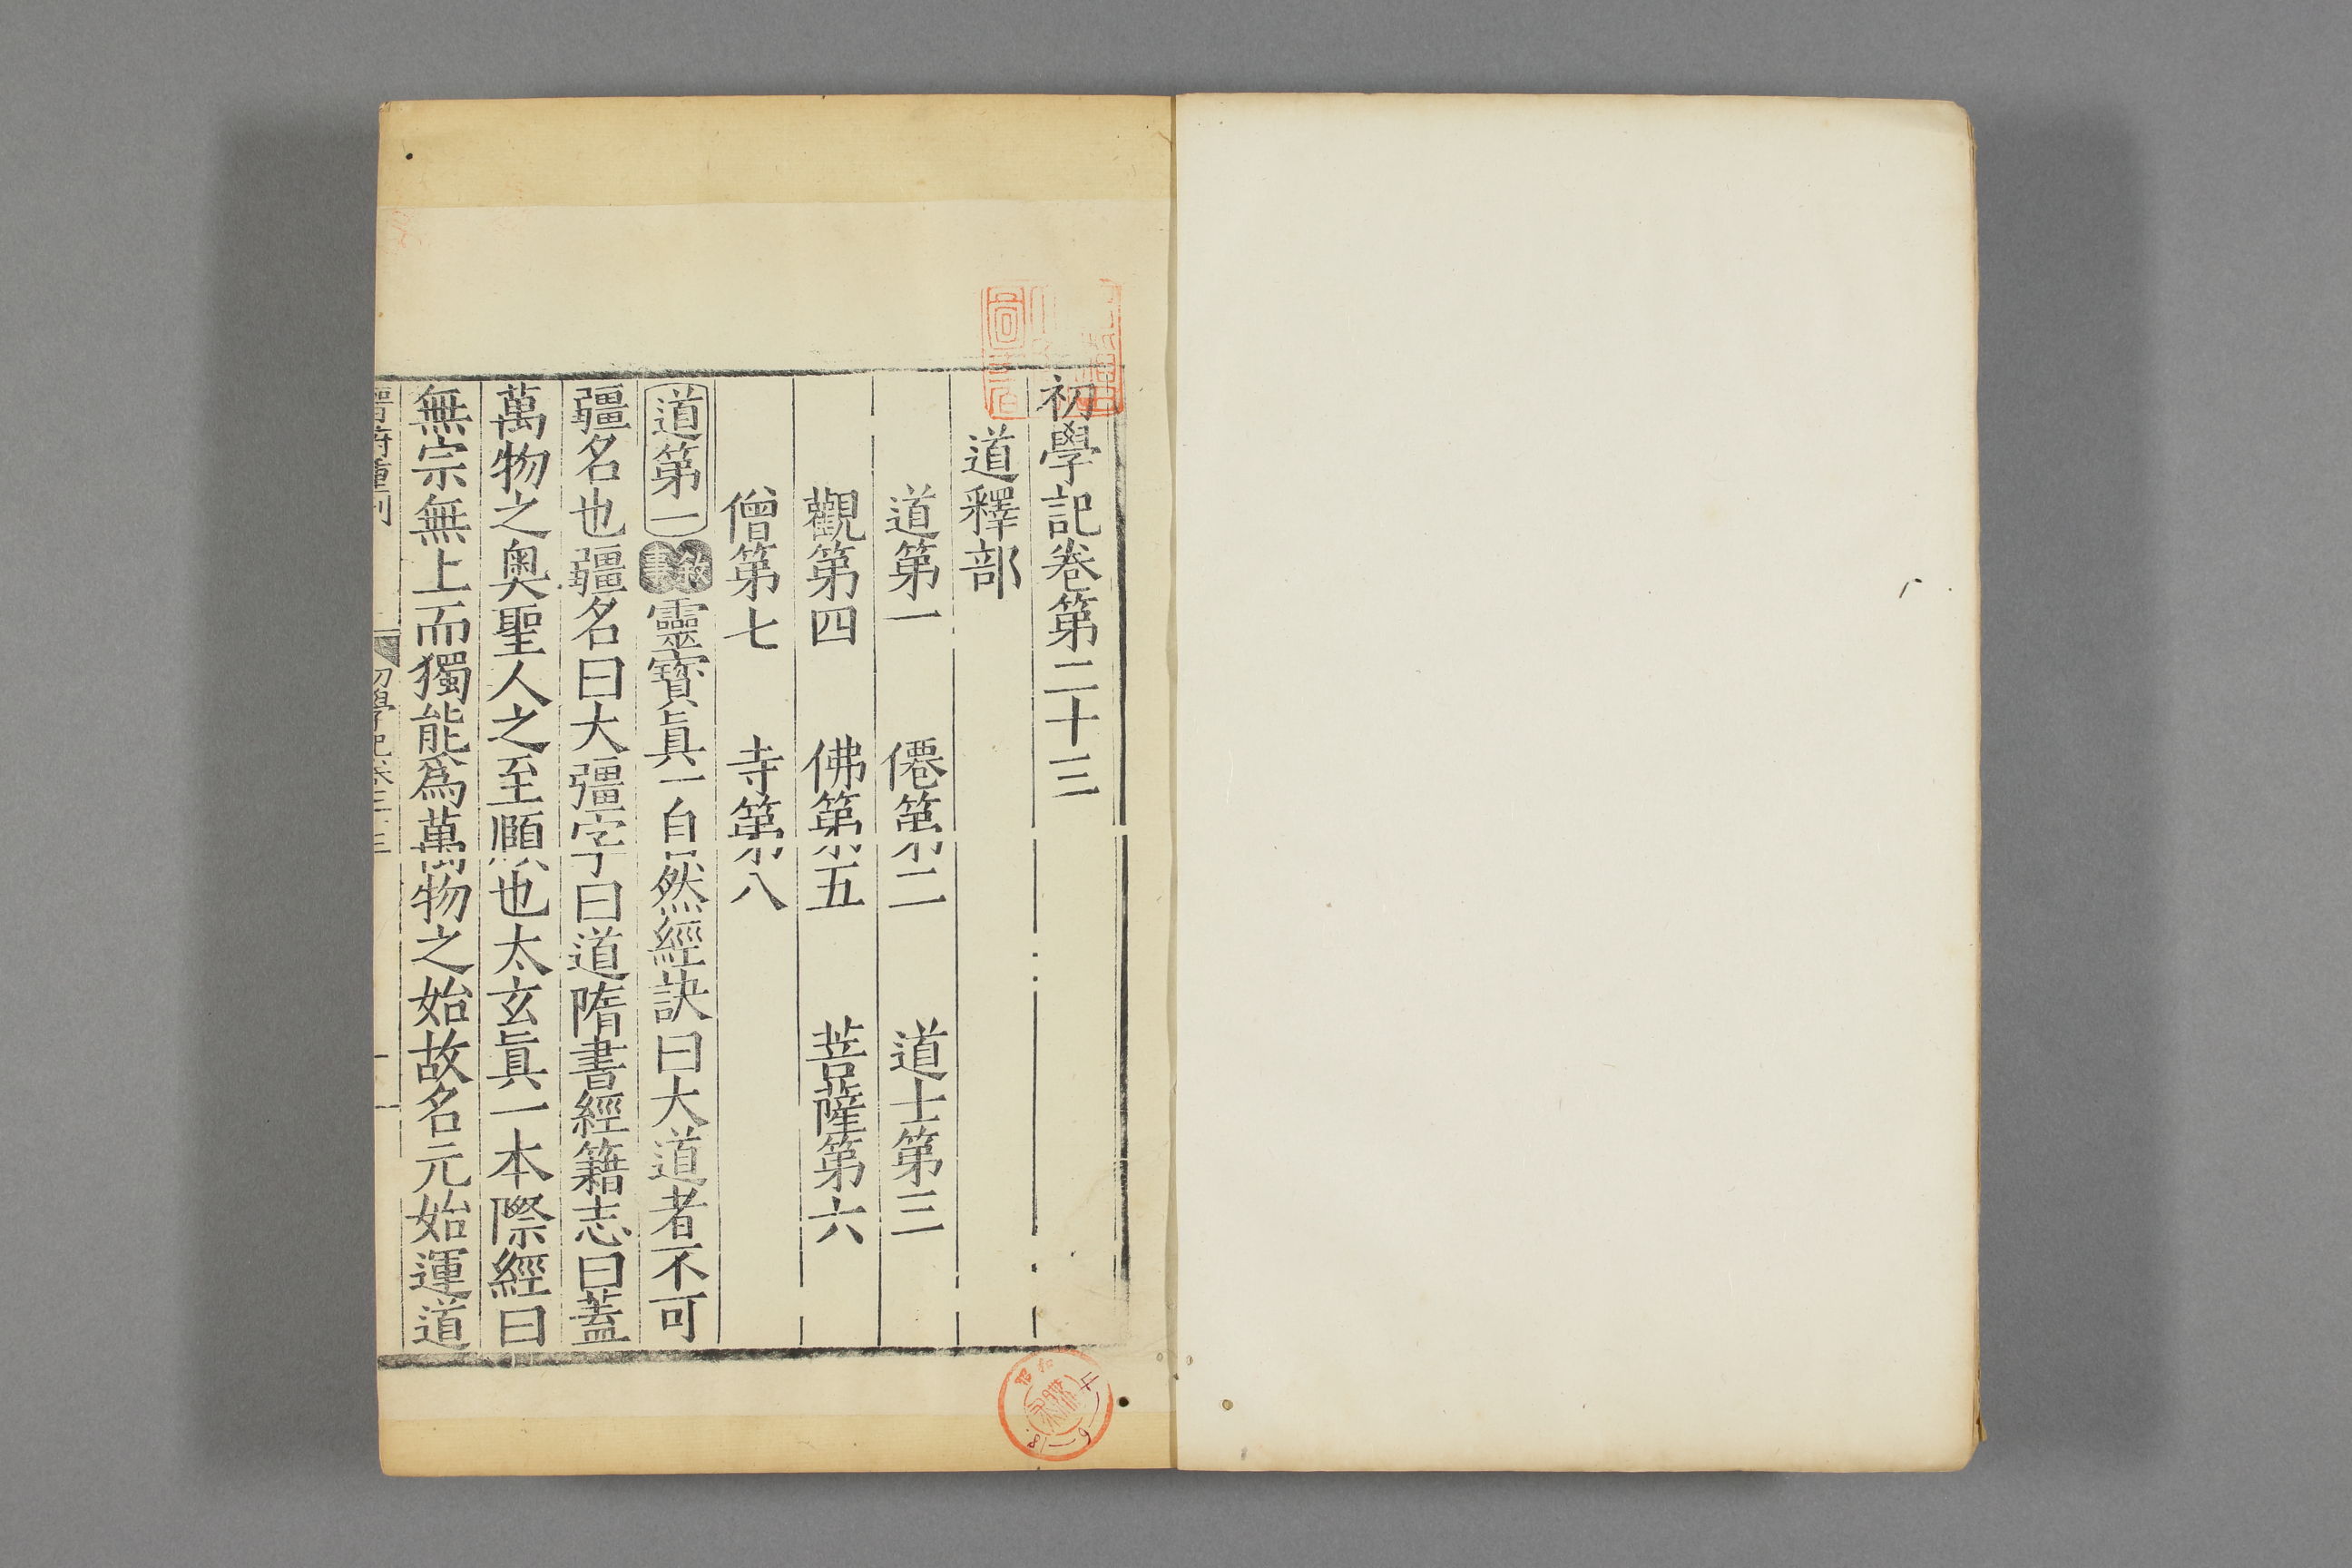 初學記卷第二十三
道釋部
道第一 僊第二 道士第三
觀第四 佛第五 菩薩第六
僧第七 寺第八
道第一 敘事 靈寶眞一自然經訣曰大道者不可
疆名也疆名曰大彊字曰道隋書經籍志曰蓋
萬物之奧聖人之至賾也太玄眞一本際經曰
無宗無上而獨能爲萬物之始故名元始運道
初學記卷二十三